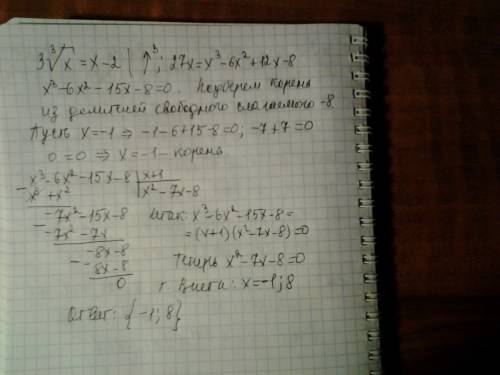 3∛x = x-2 | ↑³; 27x = x³-6x²+12x-8
x³-6x²-15x-8=0. Подберем корень
из делителей свободного слагаемого -8.
Пусть x=-1 ⇒ -1-6+15-8=0; -7+7=0
0=0 ⇒ x=-1 - корень
x³-6x²-15x-8 | x+1
x³+x² | x²-7x-8
-7x²-15x-8
-7x²-7x
-8x-8
-8x-8
0
Итак: x³-6x²-15x-8=
=(x+1)(x²-7x-8)=0
Теперь x²-7x-8=0
т. Виета: x=-1; 8
Ответ: {-1; 8}